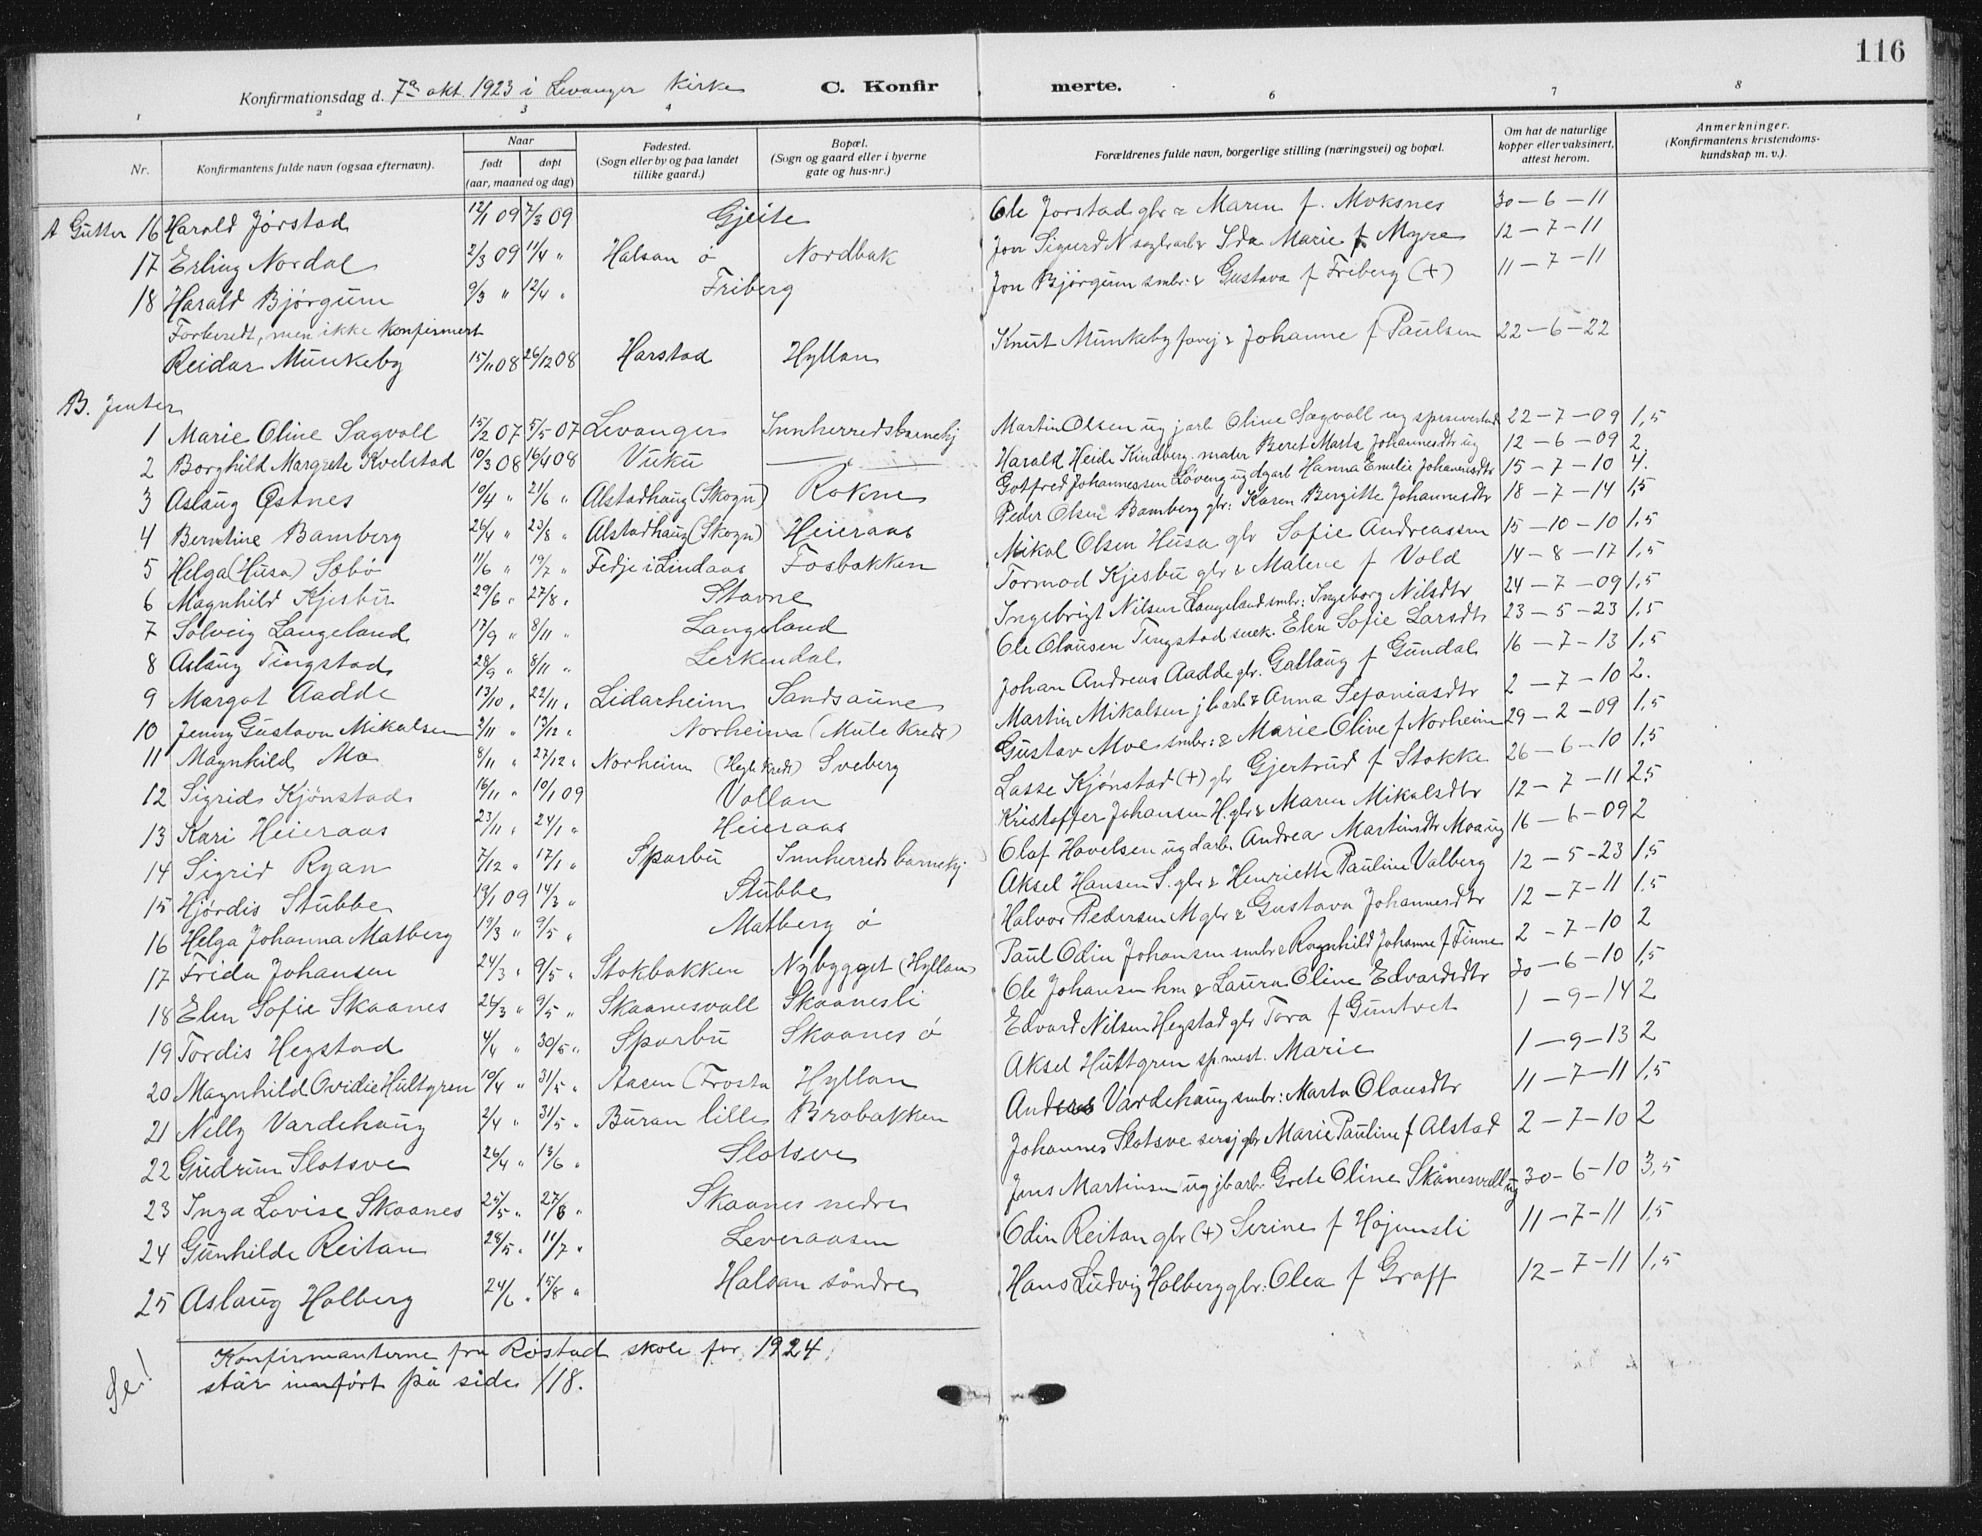 116
Konfirmationsdag d. 7de okt. 1923 i Levanger Kirke C. Konfirmerte.
1 2 3 4 6 7 8
Nr. Konfirmantens fulde navn (ogsaa efternavn). Naar født døpt (aar, maaned og dag) Fødested. (Sogn eller by og paa landet tillike gaard.) Bopæl. (Sogn og gaard eller i byerne gate og hus-nr.) Forældrenes fulde navn, borgerlige stilling (næringsvei) og bopæl. Om hat de naturlige kopper eller vaksinert, attest herom. Anmerkninger. (Konfirmantens kristendomskundskap m. v.).
A Gutter 16 Harald Jørstad 12/1 09 7/3 09 Gjeite Ole Jørstad gbr & Maren f. Moksnes 30-6-11
17 Erling Nordal 2/3 09 11/4 " Halsan ø Nordbak Jon Sigurd N sagbrarb & Ida Marie f Myre 12-7-11
18 Harald Bjørgum 9/3 " 12/4 " Friberg Jon Bjørgum smbr: & Gustava f Friberg (+) 11-7-11
Forberedt, men ikke konfirmert
Reidar Munkeby 15/11 08 26/12 08 Harstad Hyllan Knut Munkeby & Johanne f Paulsen 22-6-22
B. Jenter
1 Marie Oline Sagvoll 15/2 07 5/5 07 Levanger Innherredsbarnehj Martin Olsen ug j arb Oline Sagvoll ug 22-7-09 1,5
2 Borghild Margrete Kvelstad 10/3 08 16/4 08 Vuku — " — Harald Heide Kindberg. mater Beret Marta Johannesdtr ug 12-6-09 2
3 Aslaug Østnes 10/4 " 21/6 " Alstadhaug (Skogn) Rokne Gotfred Johannessen Løveng ug dgarb Hanna Emelie Johannesdtr 15-7-10 4.
4 Berntine Bamberg 26/4 " 23/8 " Alstadhaug (Skogn) Heieraas Peder Olsen Bamberg gbr: Karen Bergitte Johannesdtr 18-7-14 1,5
5 Helga (Husa) Sæbø 11/6 " 19/7 " Fedje i Lindaas Fosbakken Mikal Olsen Husa gbr Sofie Andreassen 15-10-10 1,5
6 Magnhild Kjesbu 29/6 " 27/8 " Stavne Tormod Kjesbu gbr & Malene f Vold 14-8-17 1,5
7 Solveig Langeland 17/9 " 8/11 " Langeland Ingebrigt Nilsen Langeland smbr: Ingeborg Nilsdtr 24-7-09 1,5
8 Aslaug Tingstad 28/9 " 8/11 " Lerkendal Ole Olausen Tingstad snek. Elen Sofie Larsdtr 23-5-23 1,5
9 Margot Aadde 13/10 " 22/11 " Lidarheim Sandsaune Johan Andreas Aadde gbr. Gallaug f Gundal 16-7-13 1,5
10 Jenny Gustava Mikalsen 2/11 " 13/12 " Norheima (Mule Kreds) Martin Mikalsen jbarb & Anna Sefaniasdtr 2-7-10 2.
11 Magnhild Mo 8/11 " 27/12 " Norheim (Hegle Kreds) Sveberg Gustav Moe smbr: & Marie Oline f Norheim 29-2-09 1,5
12 Sigrid Kjønstad 16/11 " 10/1 09 Vollan Lasse Kjønstad (+) gbr Gjertrud f Stokke 26-6-10 1,5
13 Kari Heieraas 23/11 " 24/1 " Heieraas Kristoffer Johansen H. gbr & Maren Mikalsdtr 12-7-11 2,5
14 Sigrid Ryan 7/12 " 17/1 " Sparbu Innherreds barnehj Olaf Hovelsen ug darb. Andrea Martinsdtr Moa ug 16-6-09 2
15 Hjørdis Stubbe 19/1 09 14/3 " Stubbe Aksel Hansen S. gbr & Henriette Pauline Valberg 12-5-23 1,5
16 Helga Johanna Matberg 19/3 " 9/5 " Matberg ø Halvor Pedersen M gbr & Gustava Johannesdtr 12-7-11 1,5
17 Frida Johansen 24/3 " 9/5 " Stokbakken Nybygget (Hyllan) Paul Odin Johansen smbr & Ragnhild Johanne f Finne 2-7-10 2
18 Elen Sofie Skaanes 24/3 " 9/5 " Skaanesvall Skaanesli Ole Johansen hm & Laura Oline Edvardsdtr 30-6-10 1,5
19 Tordis Hegstad 4/4 " 30/5 " Sparbu Skaanes ø Edvard Nilsen Hegstad gbr Tora f Guntvet 1-9-14 2
20 Magnhild Ovidie Hultgren 10/4 " 31/5 " Aasen (Frosta Hyllan Aksel Hultgren sp.mest. Marie 1-9-13 2
21 Nelly Vardehaug 2/4 " 31/5 " Buran lille Brobakken Anders Vardehaug smbr: Marta Olausdtr 11-7-11 1,5
22 Gudrun Slotsve 26/4 " 13/6 " Slotsve Johannes Slotsve sersj gbr Marie Pauline f Alstad 2-7-10 2
23 Inga Lovise Skaanes 25/5 " 27/6 " Skaanes nedre Jens Martinsen ug jbarb Grete Oline Skånesvoll ug 30-6-10 3,5
24 Gunhilde Reitan 28/5 " 11/7 " Leveraasen Odin Reitan gbr (+) Serine f Højemsli 11-7-11 1,5
25 Aslaug Holberg 24/6 " 15/8 " Halsan søndre Hans Ludvig Holberg gbr: Olea f Graff 12-7-11 1,5
Se! Konfirmanterne fra Røstad skole for 1924
står innført på side 118.